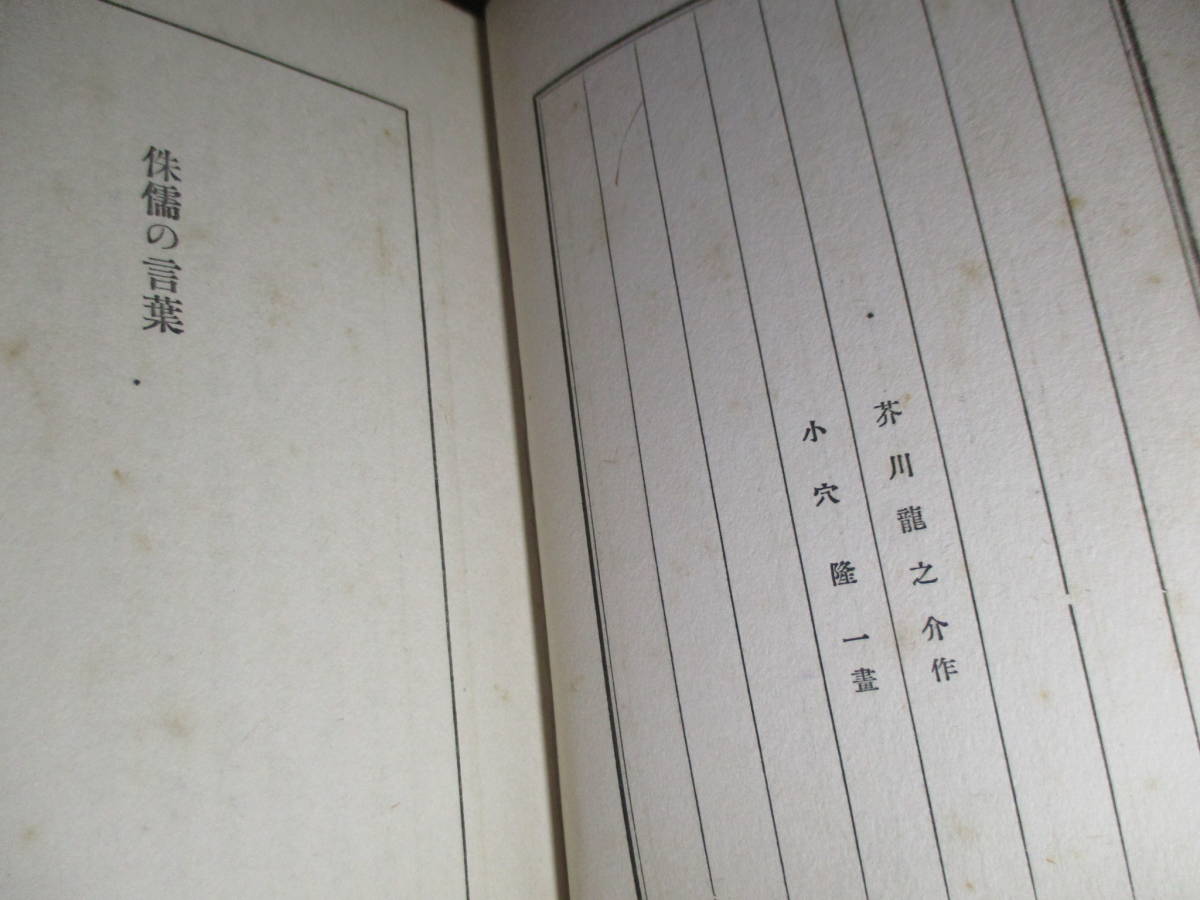 芥川龍之介作
小穴隆一畫
侏儒の言葉